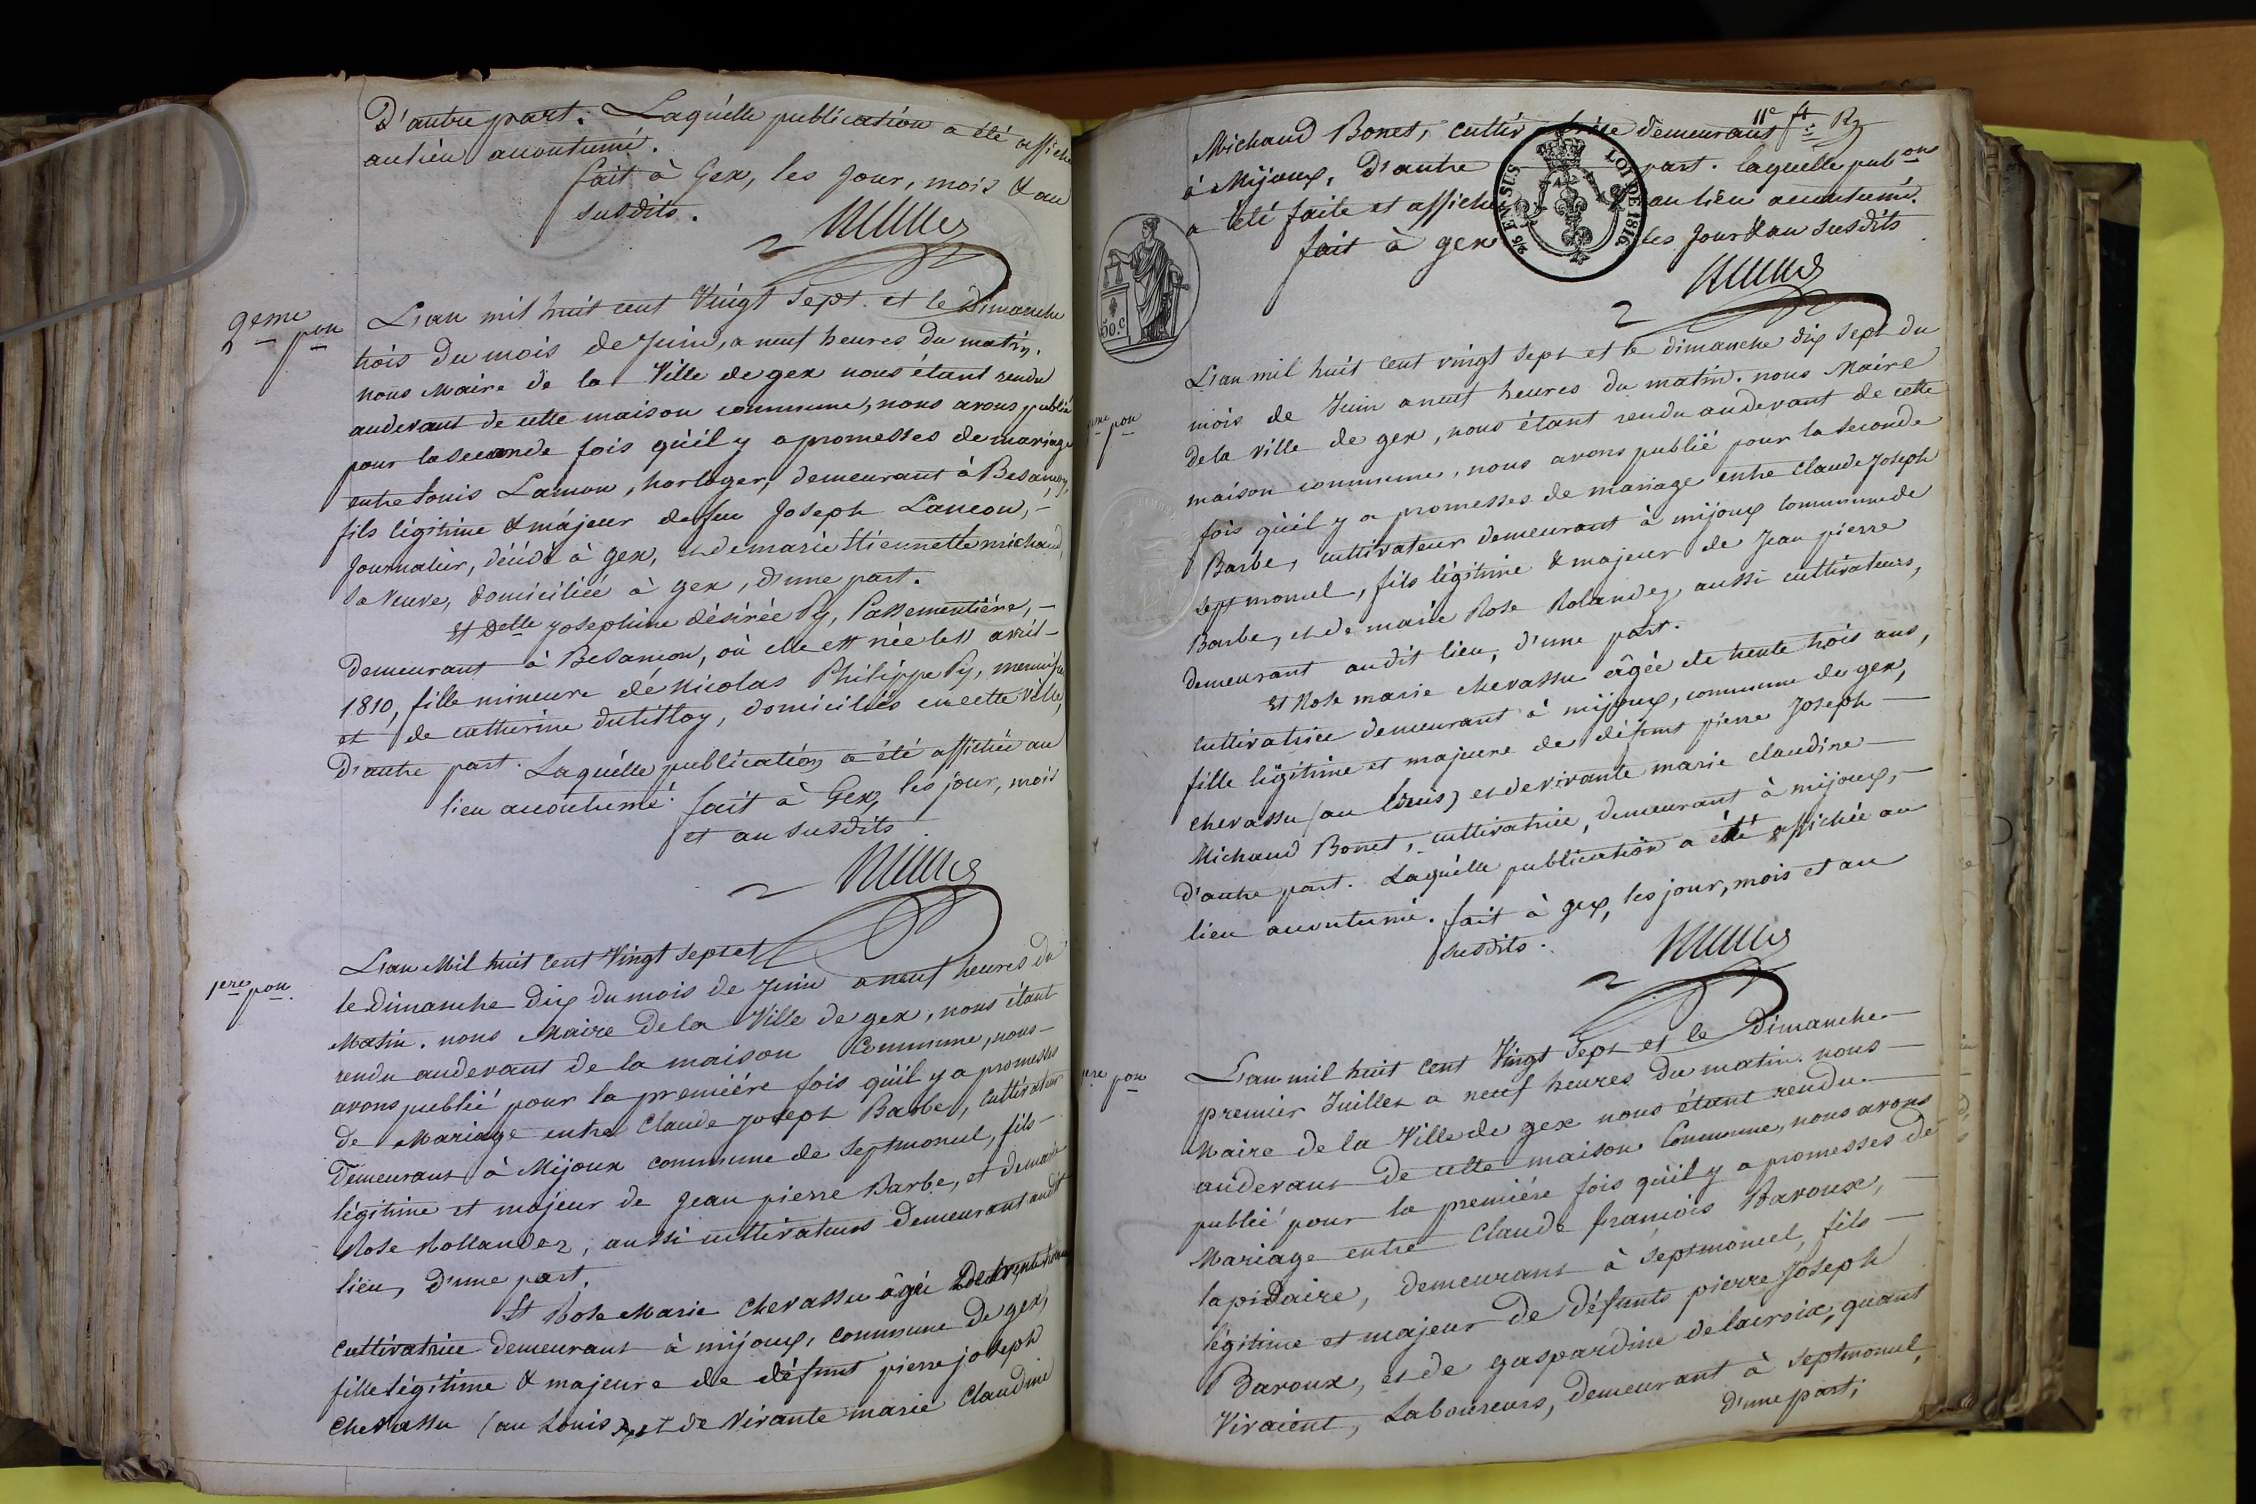 D'autre part. Laquelle publication a été affichée
au lieu accoutumé.
fait à Gex, les jour, mois & an
susdits.
2eme pon
L'an mil huit cent Vingt sept et le Dimanche
trois du mois de Juin, a neuf heures du matin.
nous Maire de la Ville de gex nous étant rendu
audevant de cette maison commune, nous avons publié
pour la seconde fois qu'il y a promesses de mariage
entre Louis Lançon, horloger, demeurant à Besançon,
fils légitime & majeur de feu Joseph Lançon, -
Journalier, décédé à Gex, et de marie Etiennette michaud,
sa Veuve, domiciliée à gex, d'une part.
Et Delle Josephine désirée Py, Passementière, -
demeurant à Besançon, où elle est née le 11 avril -
1810, fille mineure de Nicolas Philippe Py, menuisier
et de catherine dutilloy, domiciliés en cette ville,
D'autre part. Laquelle publication a été affichée au
lieu accoutumé. fait à Gex, les jour, mois
et an susdits.
1ere pon.
L'an Mil huit cent Vingt sept et
le Dimanche dix du mois de Juin a neuf heures du
Matin. nous Maire de la Ville de gex, nous étant
rendu audevant de la maison Commune, nous -
avons publié pour la première fois qu'il y a promesses
de Mariage entre Claude Joseph Barbe, Cultivateur
Demeurant à Mijoux commune de Septmoncel, fils -
légitime et majeur de Jean pierre Barbe, et de marie
Rose Rollandez, aussi cultivateurs demeurant audit
lieu, d'une part.
Et Rose Marie Chevassu âgée de trente trois ans
Cultivatrice demeurant à mijoux, commune De gex,
fille légitime & majeure de défunt pierre joseph
Chevassu (au Louis) et de Vivante marie Claudine
11e ft
Michaud Bonet, cultivatrice demeurant
à Mijoux, D'autre part. laquelle pubon
a été faite et affichée au lieu accoutumé.
fait à gex les Jour & an susdits
LOI DE 1816
50.C
2me pon
L'an mil huit cent vingt sept et le dimanche dix sept du
mois de Juin a neuf heures du matin. nous Maire
de la ville de gex, nous étant rendu audevant de cette
maison commune, nous avons publié pour la seconde
fois qu'il y a promesses de mariage entre Claude Joseph
Barbe, cultivateur demeurant à mijoux commune de
septmoncel, fils légitime & majeur de Jean pierre
Barbe, et de marie Rose Rolandez, aussi cultivateurs,
demeurant audit lieu, d'une part.
Et Rose marie chevassu âgée de trente trois ans,
cultivatrice demeurant à mijoux, commune de gex,
fille légitime et majeure de défunt pierre Joseph -
chevassu (au Louis) et de vivante marie claudine -
Michaud Bonet, cultivatrice, demeurant à mijoux, -
d'autre part. Laquelle publication a été affichée au
lieu accoutumé. fait à gex, les jour, mois et an
susdits.
1ere pon
L'an mil huit cent Vingt Sept et le Dimanche -
premier Juillet a neuf heures du matin. nous -
Maire de la Ville de gex nous étant rendu -
audevant de cette maison Commune, nous avons
publié pour la première fois qu'il y a promesses de
Mariage entre Claude françois Baroux, -
lapidaire, demeurant à septmoncel, fils -
légitime et majeur de défunts pierre Joseph
Baroux, et de gaspardine delacroix, quant
Vivaient, Laboureurs, demeurant à Septmoncel,
d'une part;